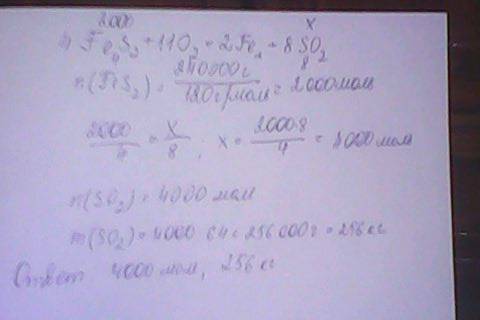 2000 x
Fe S2 + 11O2 = 2Fe + 8SO2
4 8
n(FeS2) = 240000г / 120г/мол = 2000мол
2000/4 = x/8; x = 2000·8/4 = 4000 мол
n(SO2) = 4000 мол
m(SO2) = 4000 · 64 = 256 000г = 256 кг
Ответ 4000 мол, 256 кг